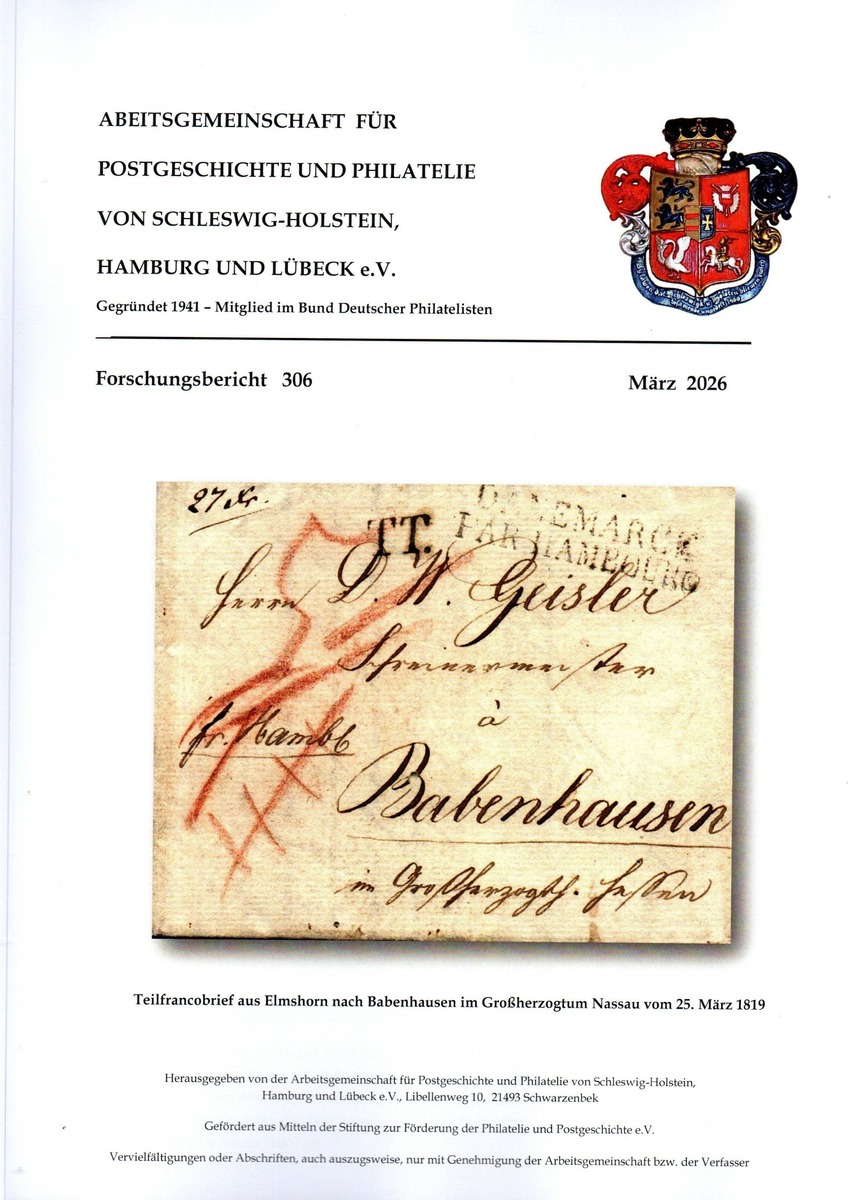 ABEITSGEMEINSCHAFT FÜR
POSTGESCHICHTE UND PHILATELIE
VON SCHLESWIG-HOLSTEIN,
HAMBURG UND LÜBECK e.V.
Gegründet 1941 – Mitglied im Bund Deutscher Philatelisten
Forschungsbericht 306
März 2026
27 Xr.
TT.
DANEMARCK
PAR HAMBOURG
Herrn D. W. Geisler
Schreinermeister
fr. Hambg
à
Babenhausen
im Großherzogth. Hessen
Teilfrancobrief aus Elmshorn nach Babenhausen im Großherzogtum Nassau vom 25. März 1819
Herausgegeben von der Arbeitsgemeinschaft für Postgeschichte und Philatelie von Schleswig-Holstein,
Hamburg und Lübeck e.V., Libellenweg 10, 21493 Schwarzenbek
Gefördert aus Mitteln der Stiftung zur Förderung der Philatelie und Postgeschichte e.V.
Vervielfältigungen oder Abschriften, auch auszugsweise, nur mit Genehmigung der Arbeitsgemeinschaft bzw. der Verfasser